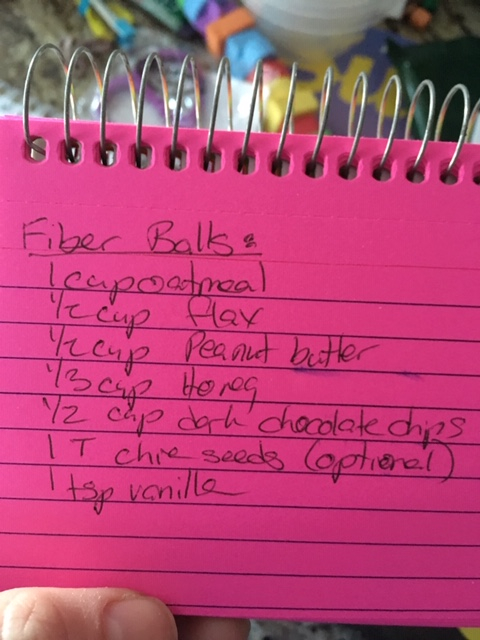 Fiber Balls:
1 cup oatmeal
1/2 cup flax
1/2 cup Peanut butter
1/3 cup Honey
1/2 cup dark chocolate chips
1 T chia seeds (optional)
1 tsp vanilla